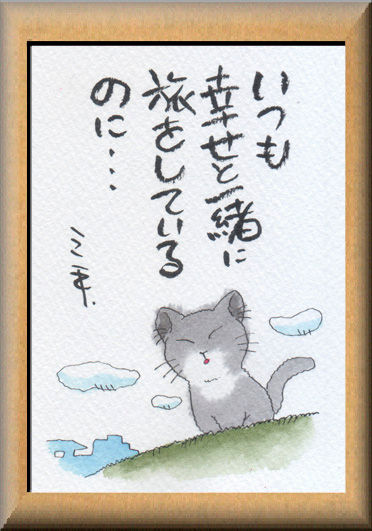 いつも
幸せと一緒に
旅をしている
のに・・・